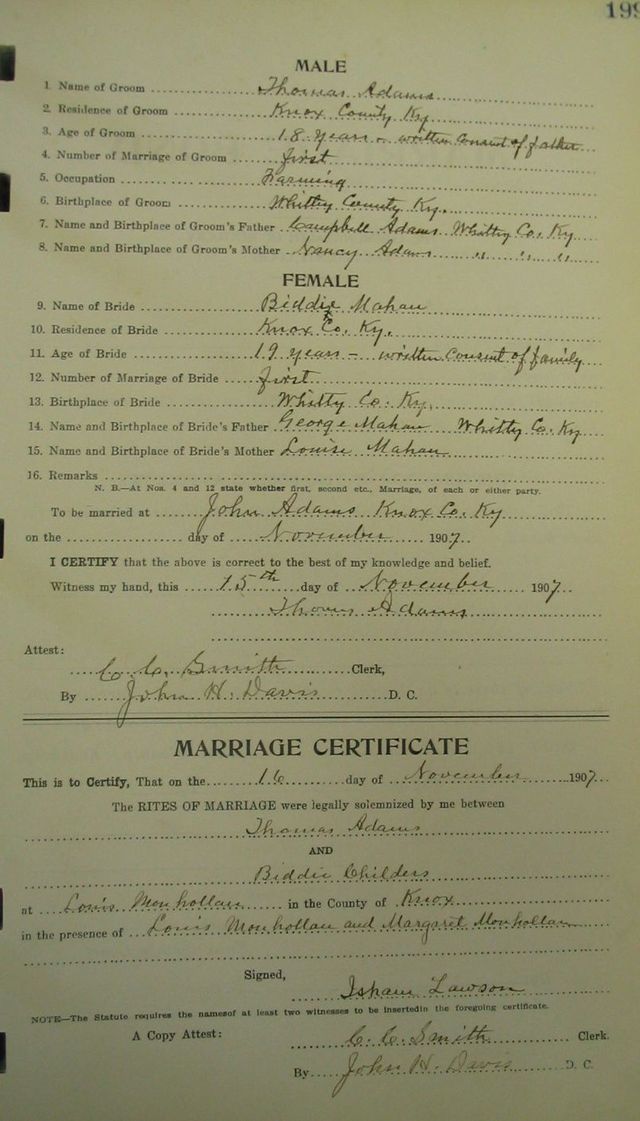 199
MALE
1. Name of Groom Thomas Adams
2. Residence of Groom Knox County Ky
3. Age of Groom 18 years – written consent of father
4. Number of Marriage of Groom first
5. Occupation Farming
6. Birthplace of Groom Whitty County Ky.
7. Name and Birthplace of Groom's Father Campbell Adams Whitty Co. Ky
8. Name and Birthplace of Groom's Mother Nancy Adams " " "
FEMALE
9. Name of Bride Biddie Mahan
10. Residence of Bride Knox Co. Ky.
11. Age of Bride 19 years – written consent of family
12. Number of Marriage of Bride first
13. Birthplace of Bride Whitty Co. Ky.
14. Name and Birthplace of Bride's Father George Mahan Whitty Co. Ky
15. Name and Birthplace of Bride's Mother Louise Mahan
16. Remarks
N. B.—At Nos. 4 and 12 state whether first, second etc., Marriage, of each or either party.
To be married at John Adams Knox Co. Ky
on the day of November 1907.
I CERTIFY that the above is correct to the best of my knowledge and belief.
Witness my hand, this 15th day of November 1907
Adams
Attest:
C. C. Smith Clerk,
By John H. Davis D. C.
MARRIAGE CERTIFICATE
This is to Certify, That on the 16 day of November 1907
The RITES OF MARRIAGE were legally solemnized by me between
Thomas Adams
AND
Biddie Childers
at Louis Monhollan in the County of Knox
in the presence of Louis Monhollan and Margaret Monhollan
Signed,
Isham Lawson
NOTE—The Statute requires the namesof at least two witnesses to be insertedin the foregoing certificate.
A Copy Attest: C. C. Smith Clerk.
By John H. Davis D. C.